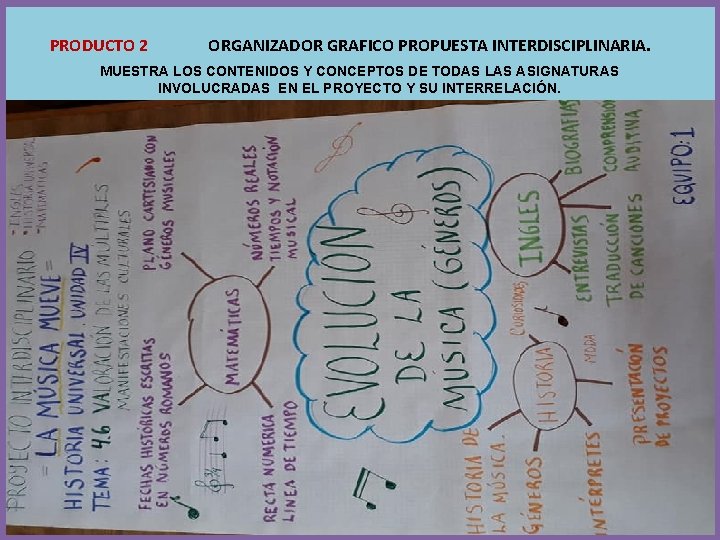 PRODUCTO 2 ORGANIZADOR GRAFICO PROPUESTA INTERDISCIPLINARIA.
MUESTRA LOS CONTENIDOS Y CONCEPTOS DE TODAS LAS ASIGNATURAS
INVOLUCRADAS EN EL PROYECTO Y SU INTERRELACIÓN.
PROYECTO INTERDISCIPLINARIO
- INGLES
- HISTORIA UNIVERSAL
- MATEMATICAS
= LA MÚSICA MUEVE =
HISTORIA UNIVERSAL UNIDAD IV
TEMA: 4.6 VALORACIÓN DE LAS MULTIPLES
MANIFESTACIONES CULTURALES
FECHAS HISTÓRICAS ESCRITAS
EN NÚMEROS ROMANOS
PLANO CARTESIANO CON
GÉNEROS MUSICALES
MATEMÁTICAS
RECTA NUMERICA
LINEA DE TIEMPO
NÚMEROS REALES
TIEMPOS Y NOTACIÓN
MUSICAL
EVOLUCION
DE LA
MÚSICA (GÉNEROS)
HISTORIA DE
LA MÚSICA.
GÉNEROS
CURIOSIDADES
HISTORIA
MODA
INTÉRPRETES
INGLES
BIOGRAFIAS
COMPRENSIÓN
AUDITIVA
ENTREVISTAS
TRADUCCIÓN
DE CANCIONES
PRESENTACIÓN
DE PROYECTOS
EQUIPO:1